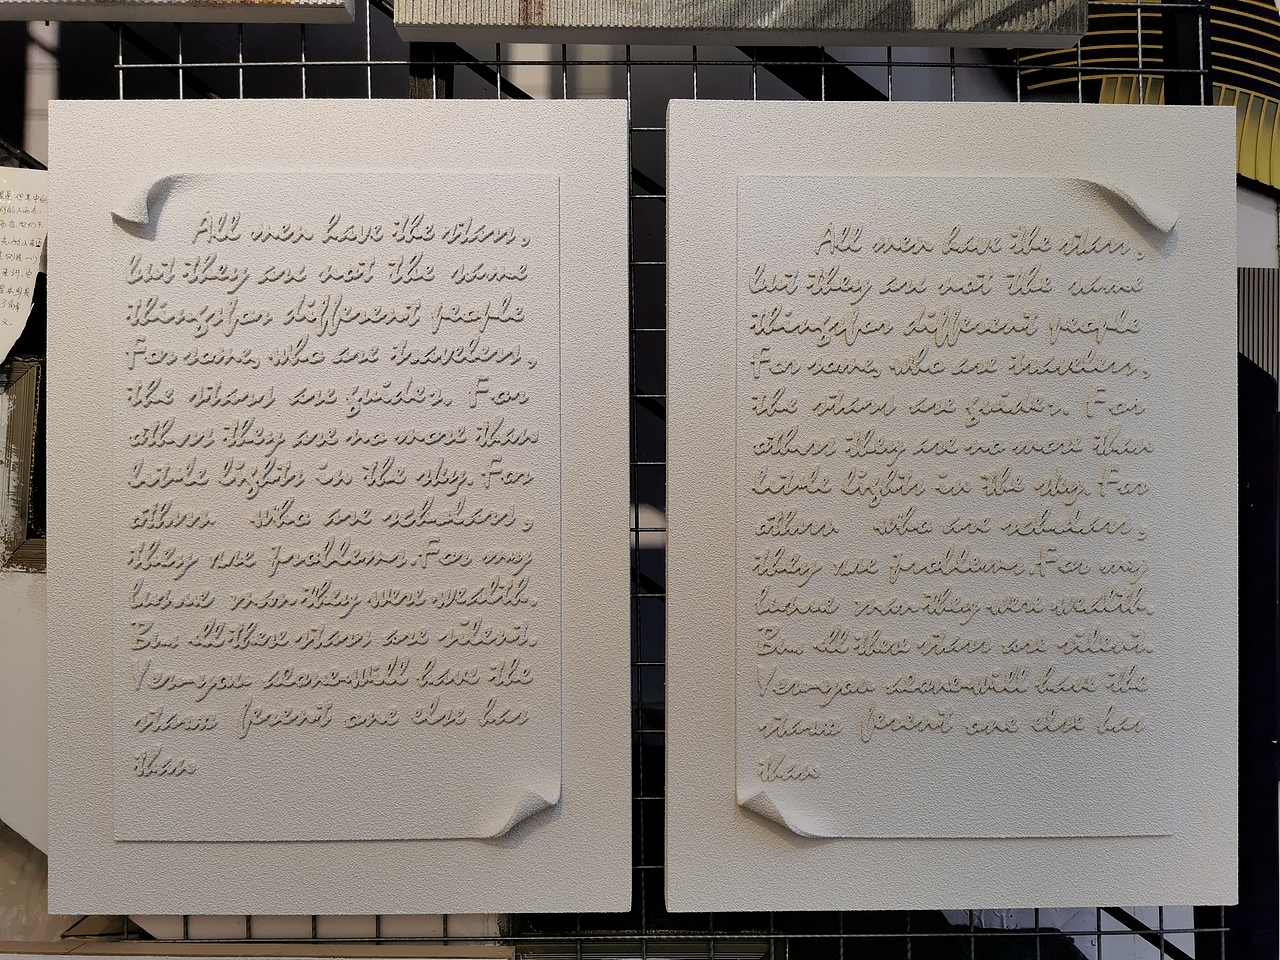 All men have the stars,
but they are not the same
things for different people
For some, who are travelers,
the stars are guides. For
others they are no more than
little lights in the sky. For
others who are scholars,
they are problems. For my
they were wealth.
all these stars are silent.
you alone will have the
one else has
than
All men have the stars,
but they are not the same
things for different people
For some, who are travelers,
the stars are guides. For
others they are no more than
little lights in the sky. For
others who are scholars,
they are problems. For my
they were wealth.
all these stars are silent.
you alone will have the
one else has
than